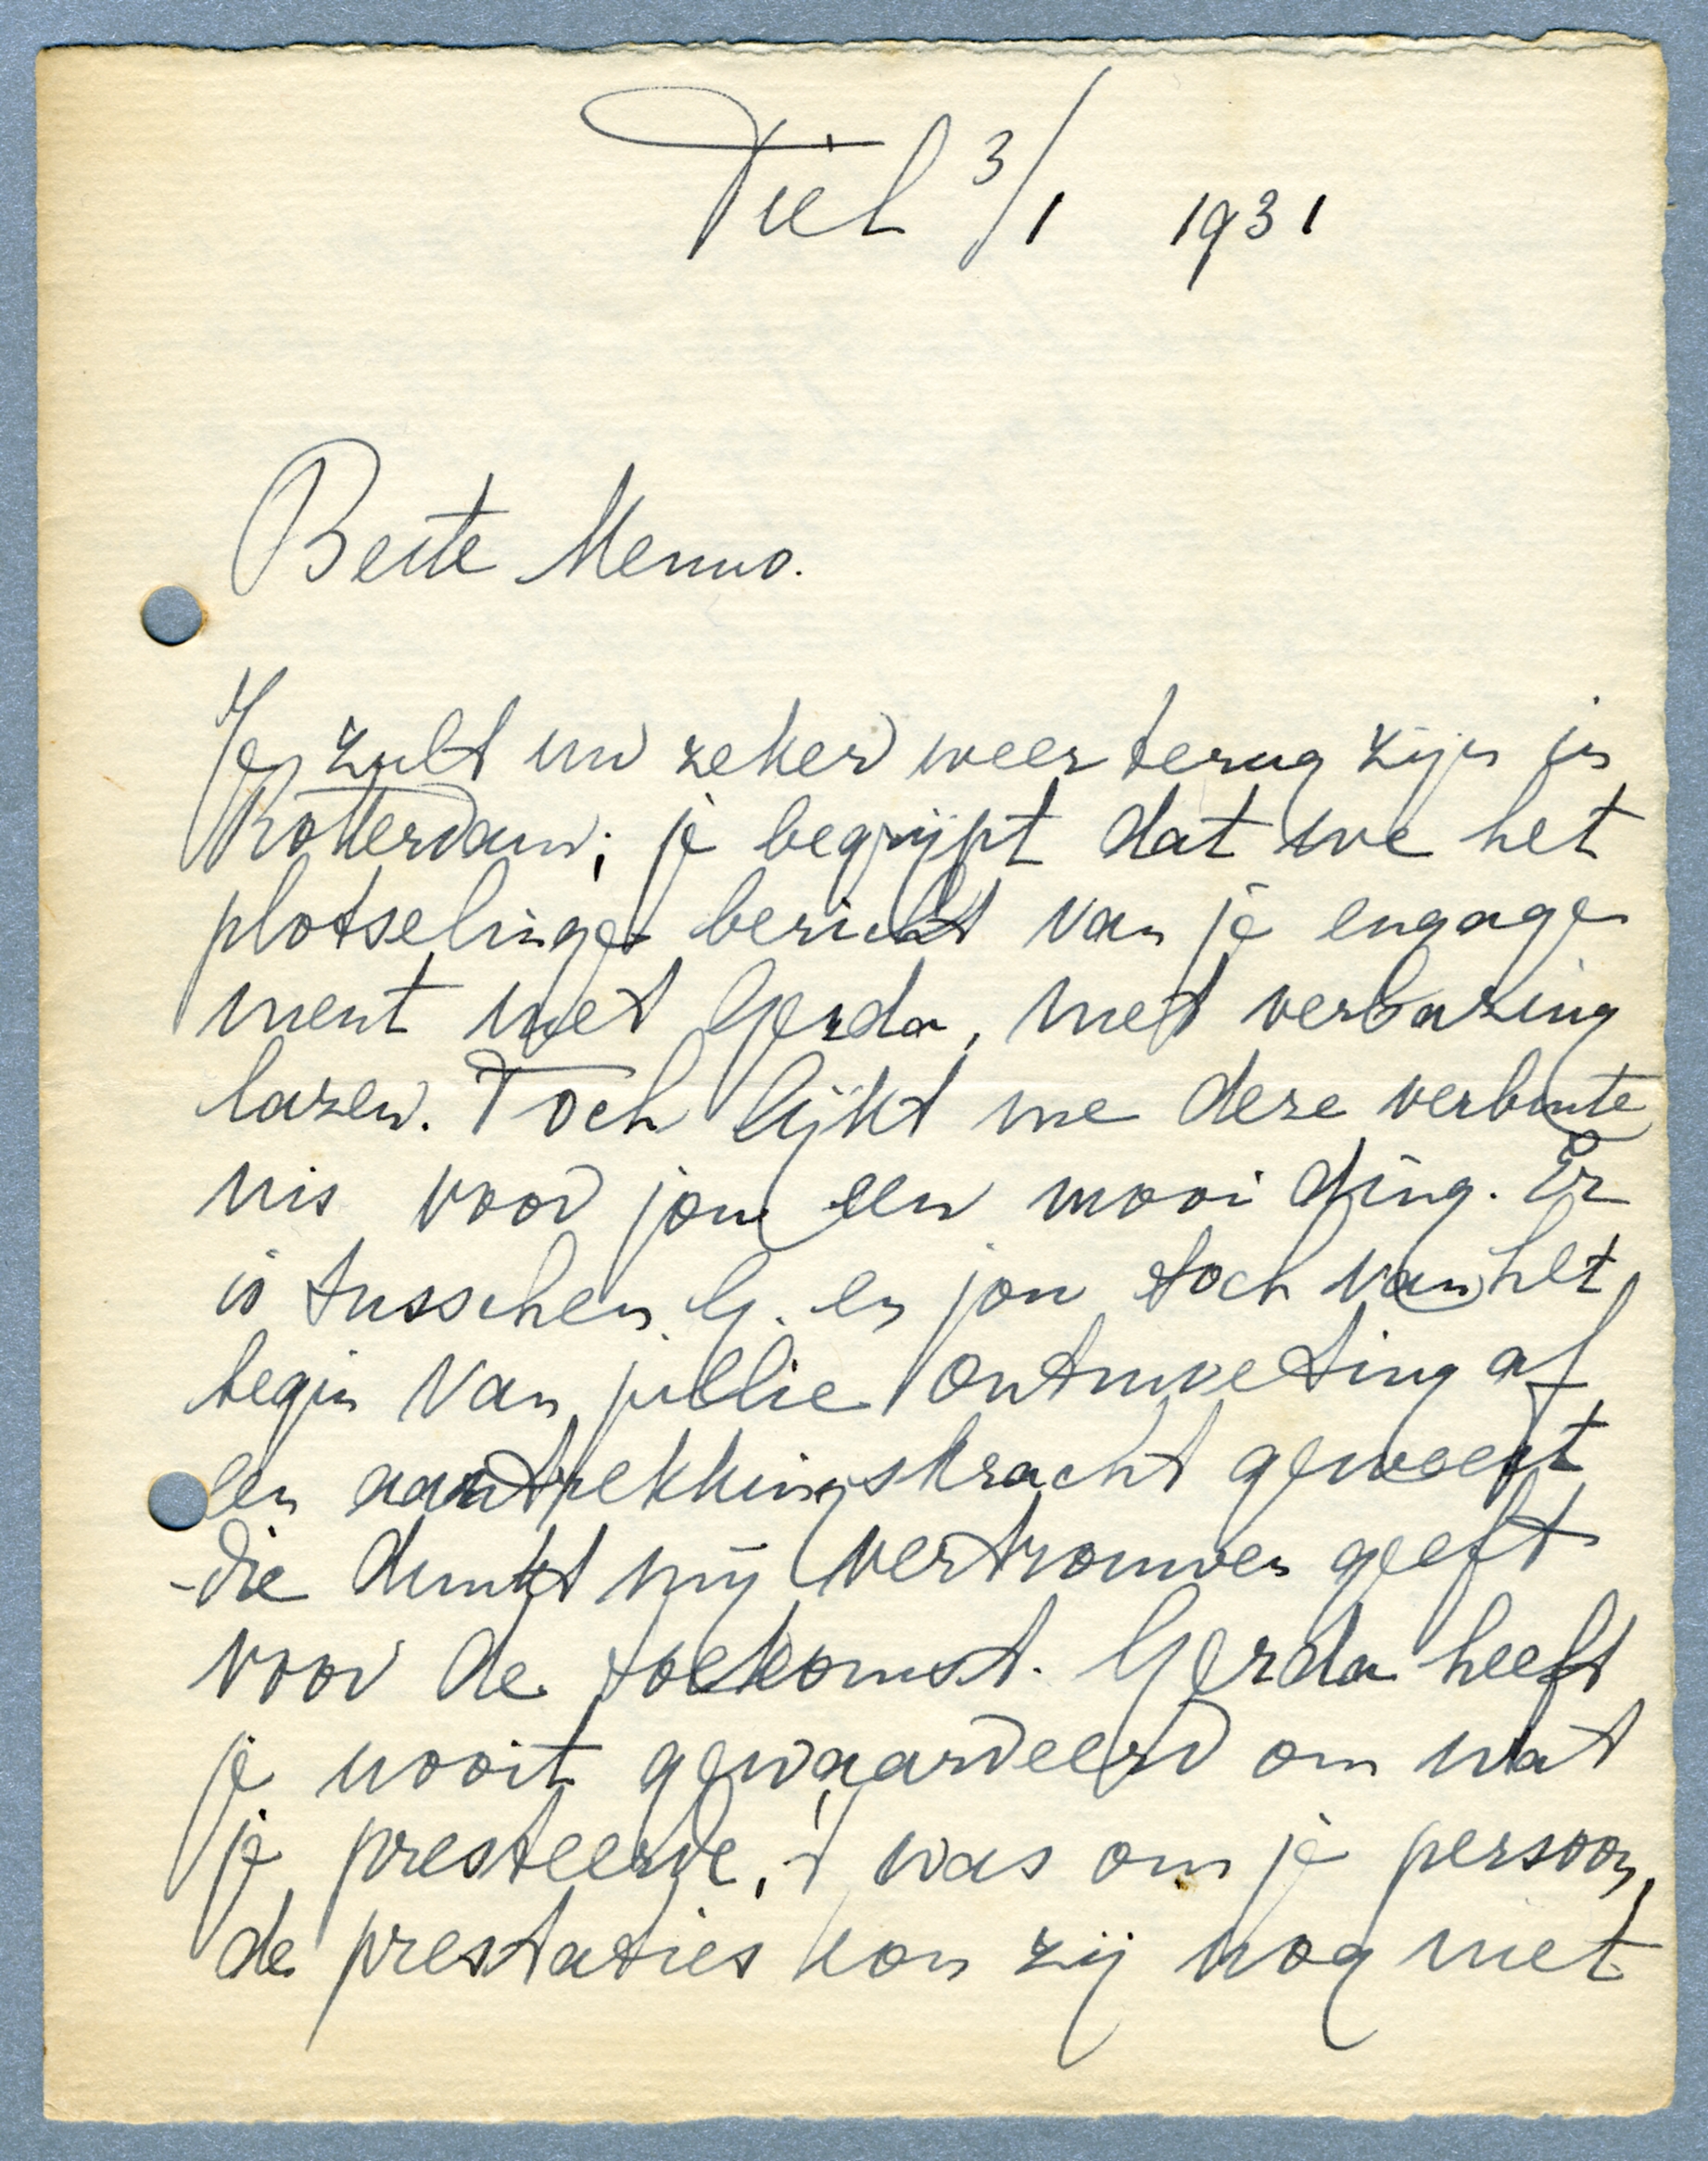 Tiel 3/1 1931
Beste Menno.
Je zult nu zeker weer terug zijn in
Rotterdam; je begrijpt dat we het
plotselinge bericht van je engage
ment met Gerda, met verbazing
lazen. Toch lijkt me deze verbinte
nis voor jou een mooi ding. Er
is tusschen G. en jou toch van het
begin van jullie ontmoeting af
een aantrekkingskracht geweest
die dunkt mij vertrouwen geeft
voor de toekomst. Gerda heeft
je nooit gewaardeerd om wat
je presteerde, 't was om je persoon,
de prestaties kon zij nog niet